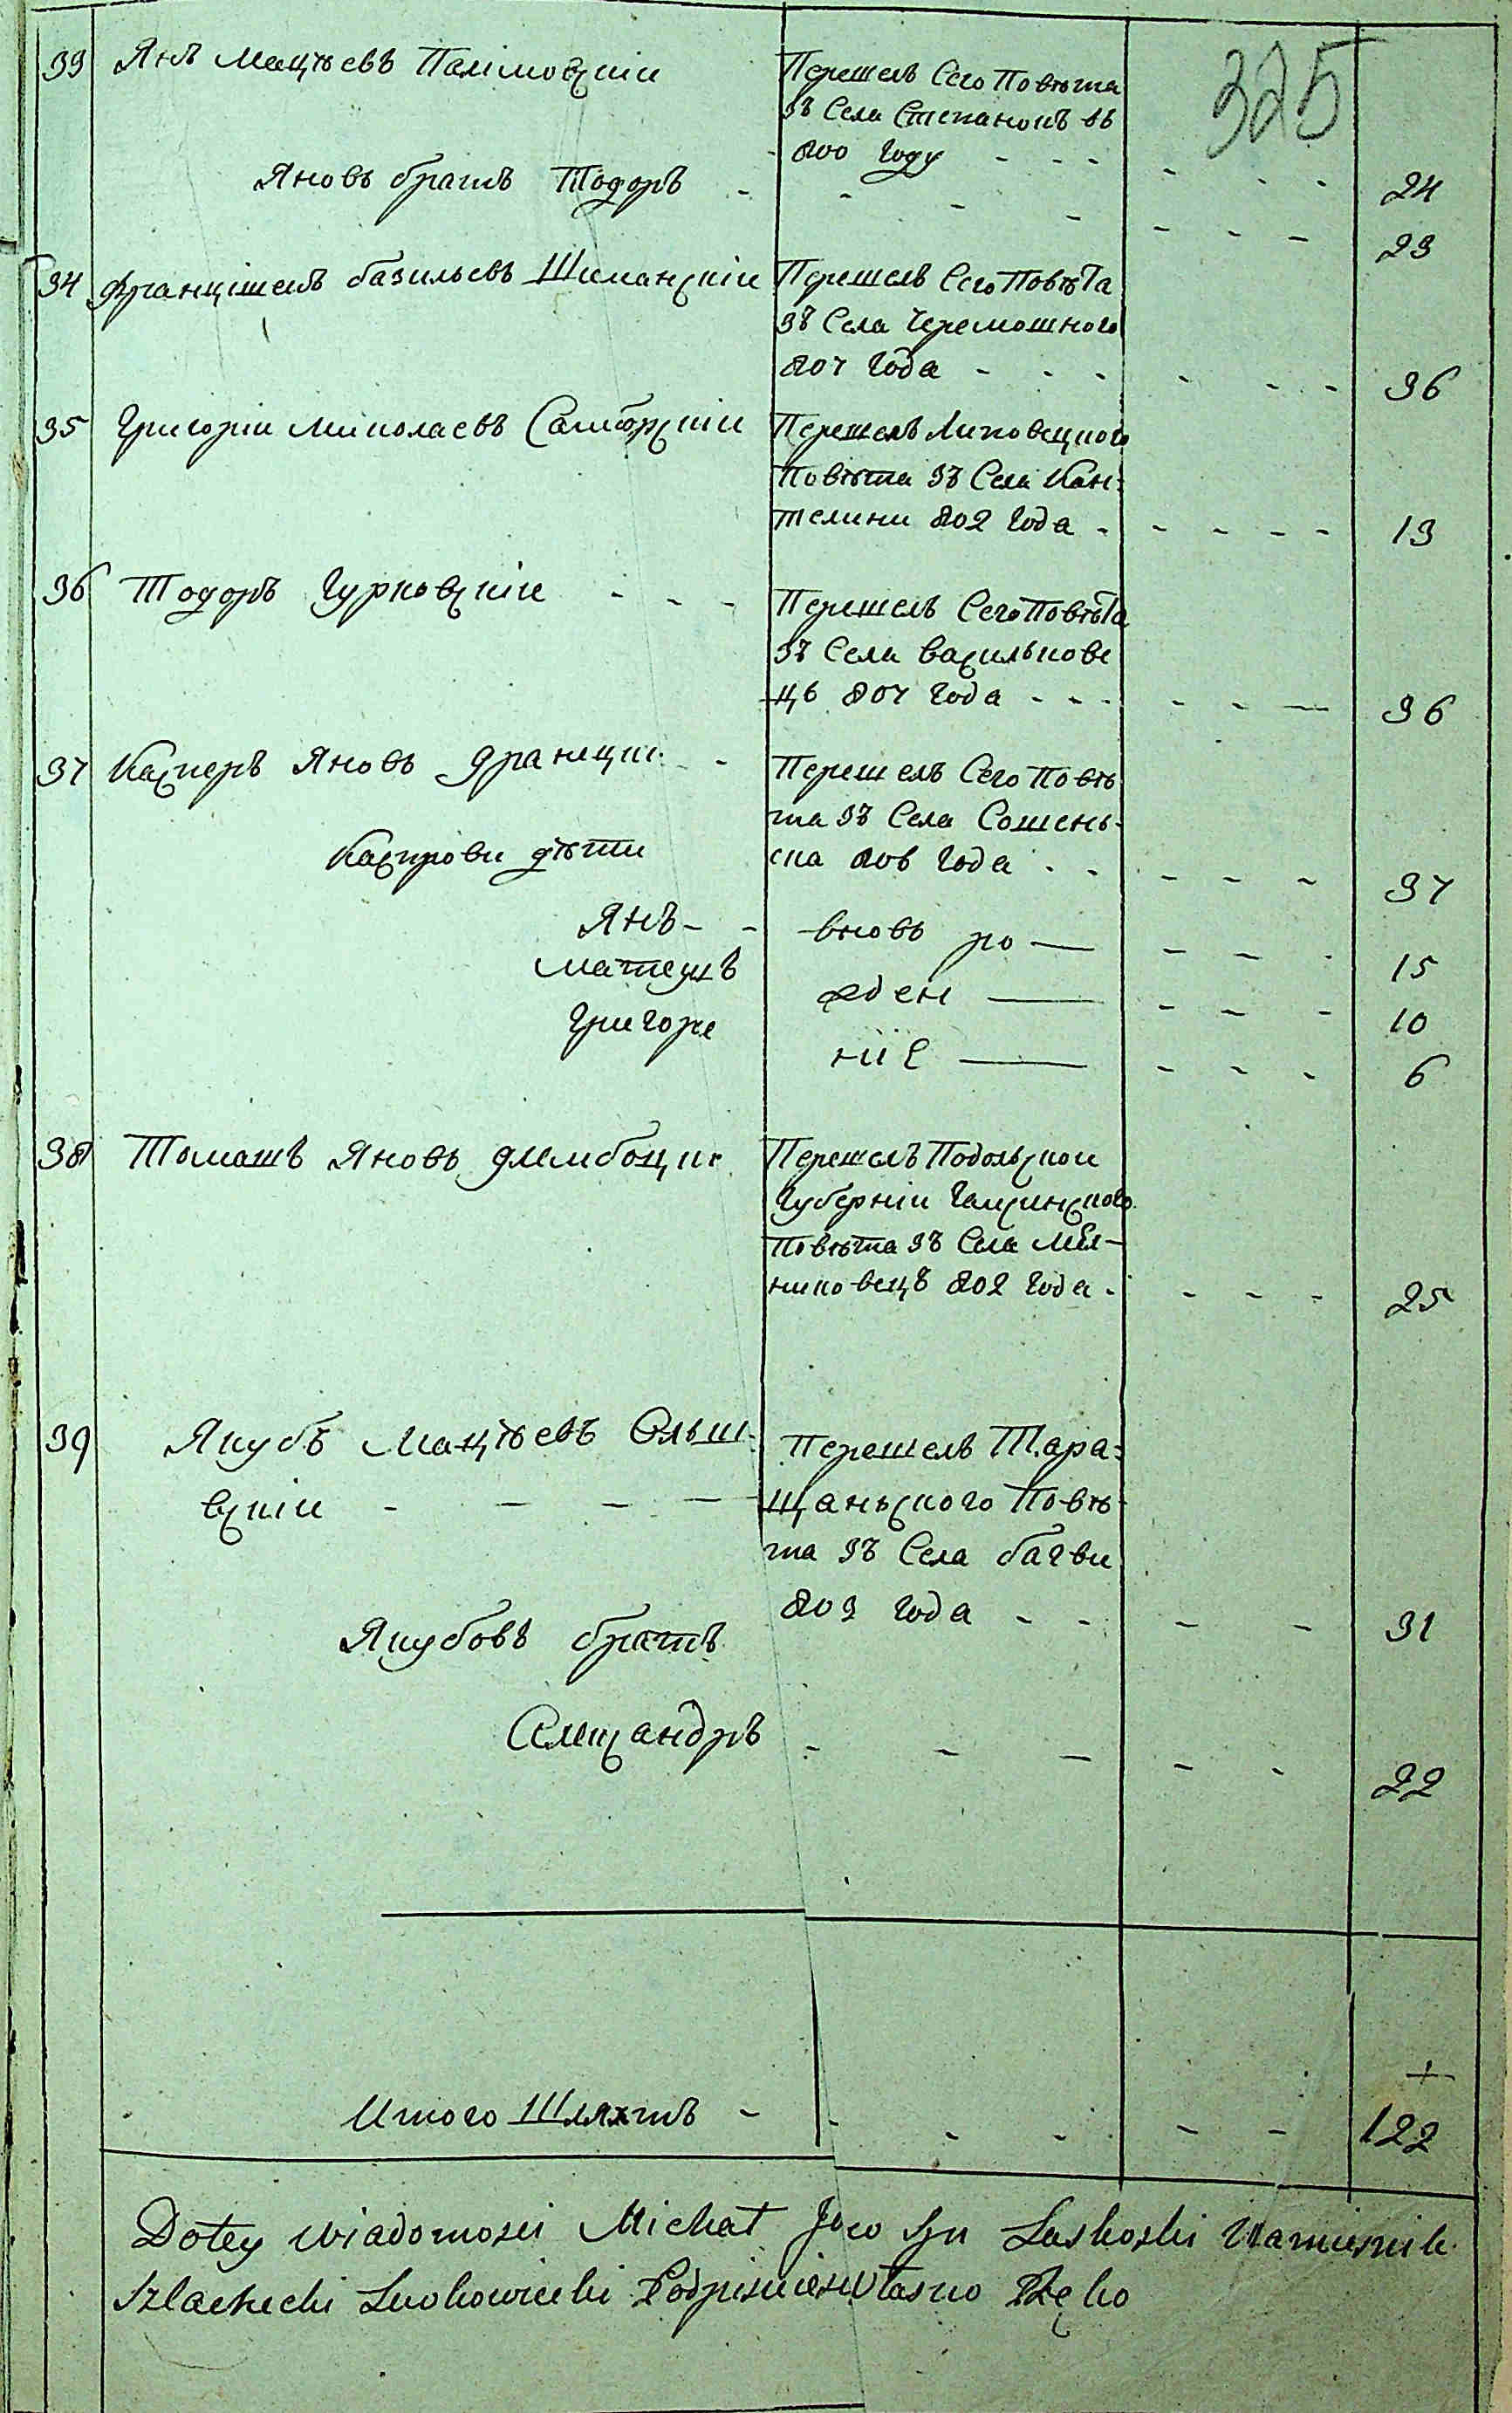 325
33 Янъ Мацѣевъ Палімовскіи
Перешелъ Сего Повѣта
зъ Села Степанокъ въ
800 Году - - - 24
Яновъ братъ Тодоръ - 23
34 Францішекъ базильевъ Шиманскіи
Перешелъ Сего Повѣта
зъ Села Черемошного
807 Года - - - 36
35 Григоріи Миколаевъ Самборскіи
Перешелъ Липовецкого
Повѣта зъ Села Кан:
телини 802 Года - 13
36 Тодоръ Гурковскіи - - -
Перешелъ Сего Повѣта
зъ Села василькове
цъ 807 Года - - - 36
37 Касперъ Яновъ
Перешелъ Сего Повѣ
та зъ Села Сошень-
ска 806 Года - - 37
Каспрови дѣти
Янъ - - вновь ро — 15
Матеушъ жден — 10
Григоре ніе — 6
38 Томашъ Яновъ длембоцки
Перешелъ Подольскои
Губерніи Гайсинского
Повѣта зъ Села Мѣл-
никовецъ 802 Года - 25
39 Якубъ Мацѣевъ Ольш
евскіи - - - -
Перешелъ Тара:
щаньского Повѣ-
та зъ Села багви
803 Года - - 31
Якубовъ братъ
Александръ - - - 22
Итого Шляхтъ - - 122
Dotey wiadomosci Michał Syn Laskoski Namiesnik
Szlachecki Lwohowiecki Podpisuie się własno Ręko